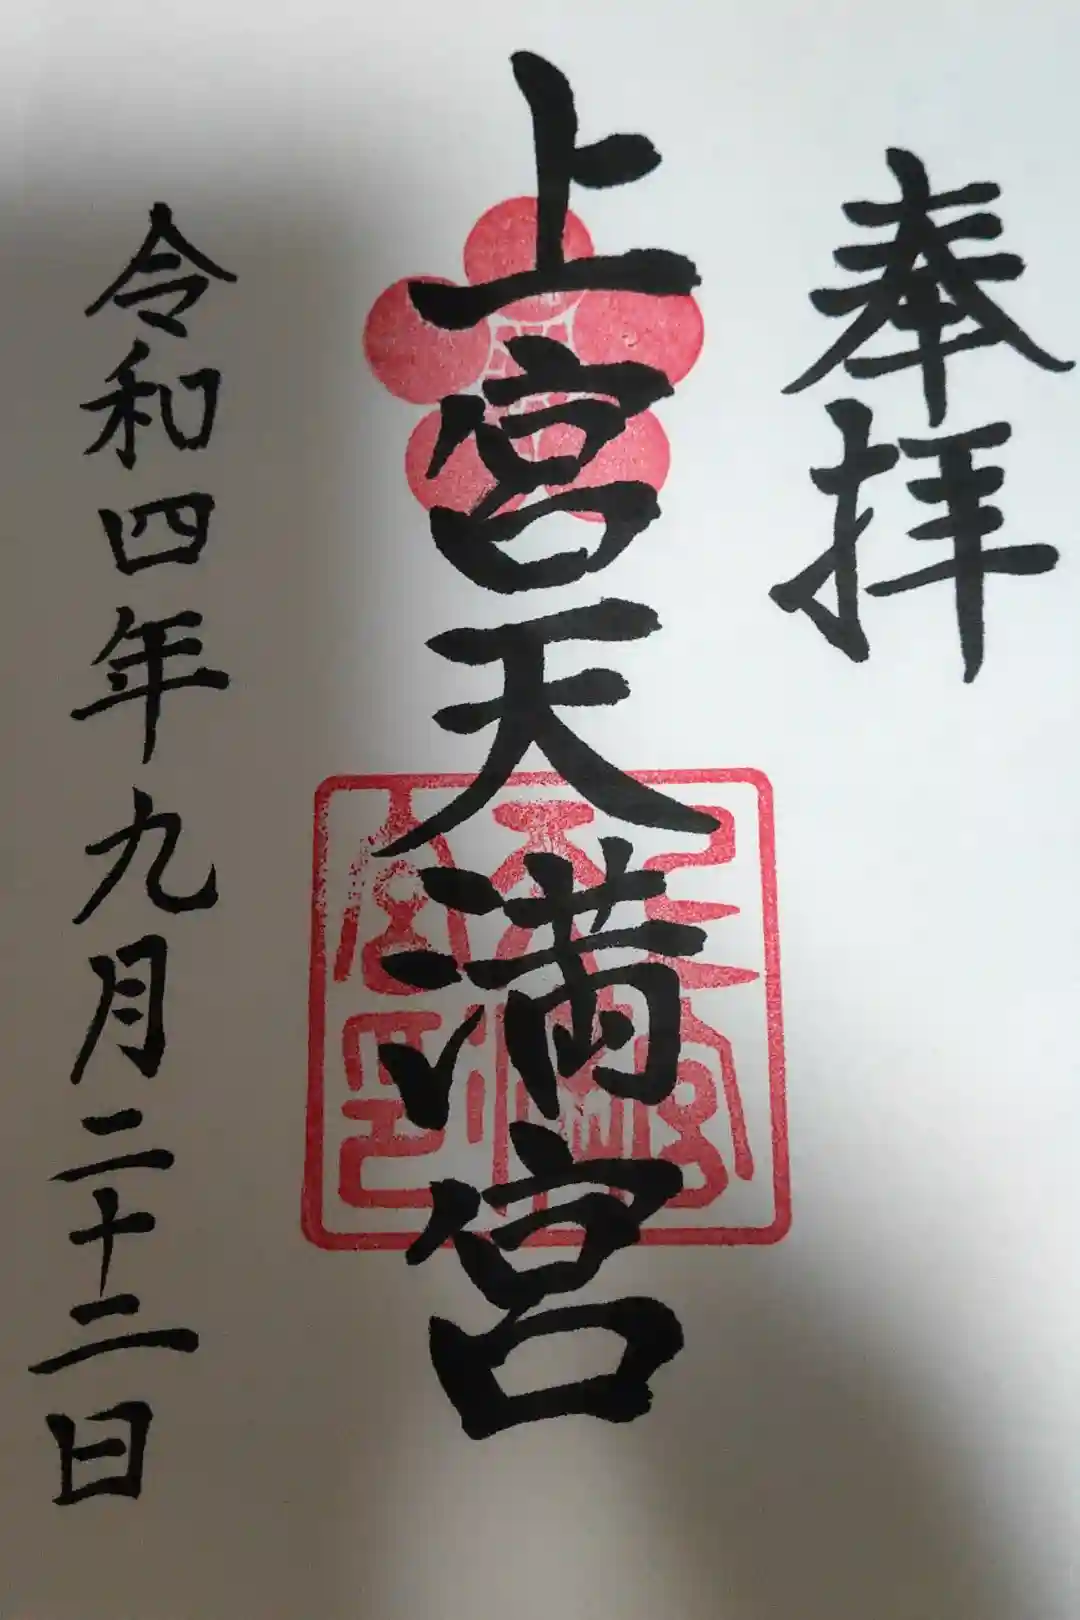 奉拝
上宮天満宮
令和四年九月二十二日